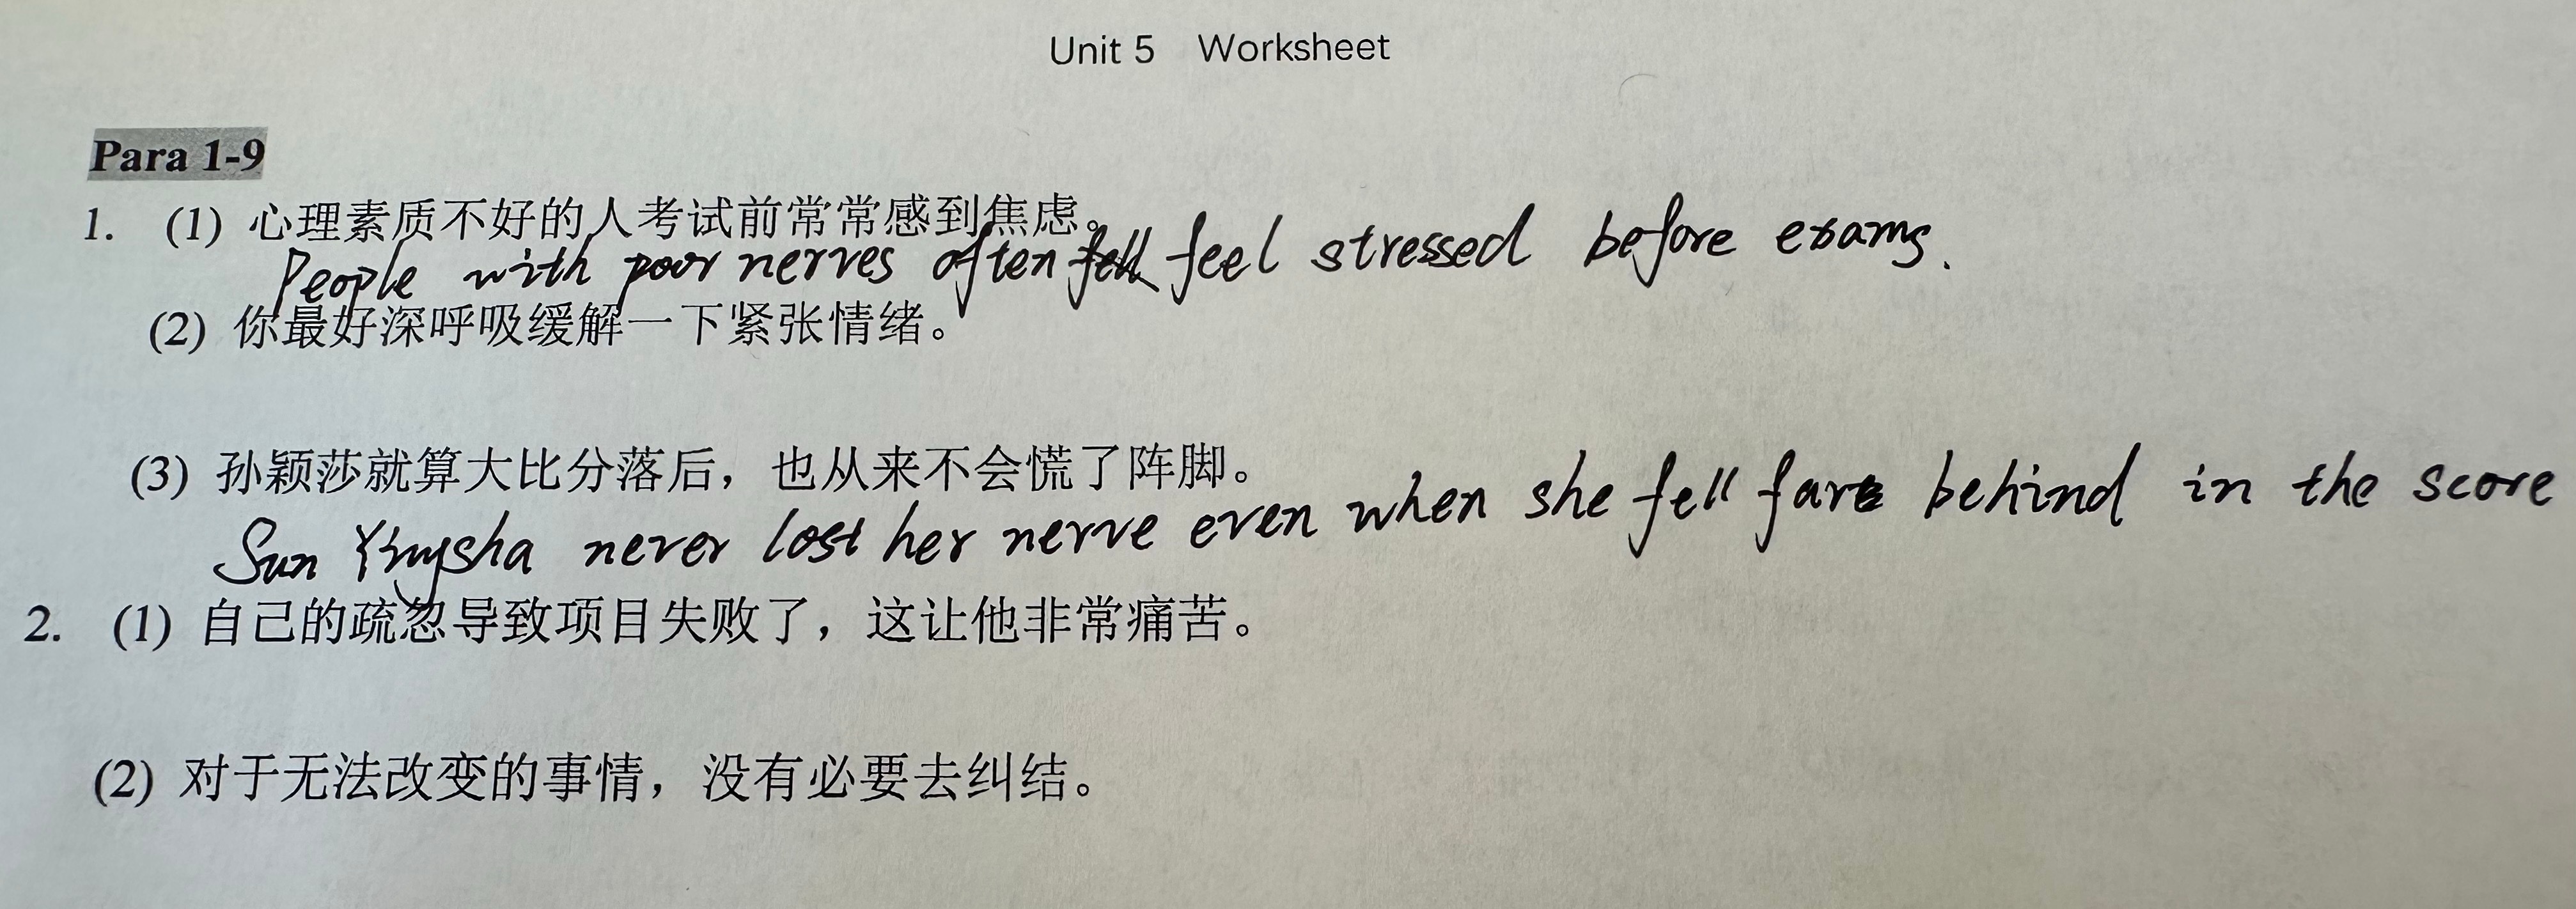 Unit 5 Worksheet
Para 1-9
1. (1) 心理素质不好的人考试前常常感到焦虑。
People with poor nerves often feel stressed before exams.
(2) 你最好深呼吸缓解一下紧张情绪。
(3) 孙颖莎就算大比分落后，也从来不会慌了阵脚。
Sun Yingsha never lost her nerve even when she fell far behind in the score
2. (1) 自己的疏忽导致项目失败了，这让他非常痛苦。
(2) 对于无法改变的事情，没有必要去纠结。